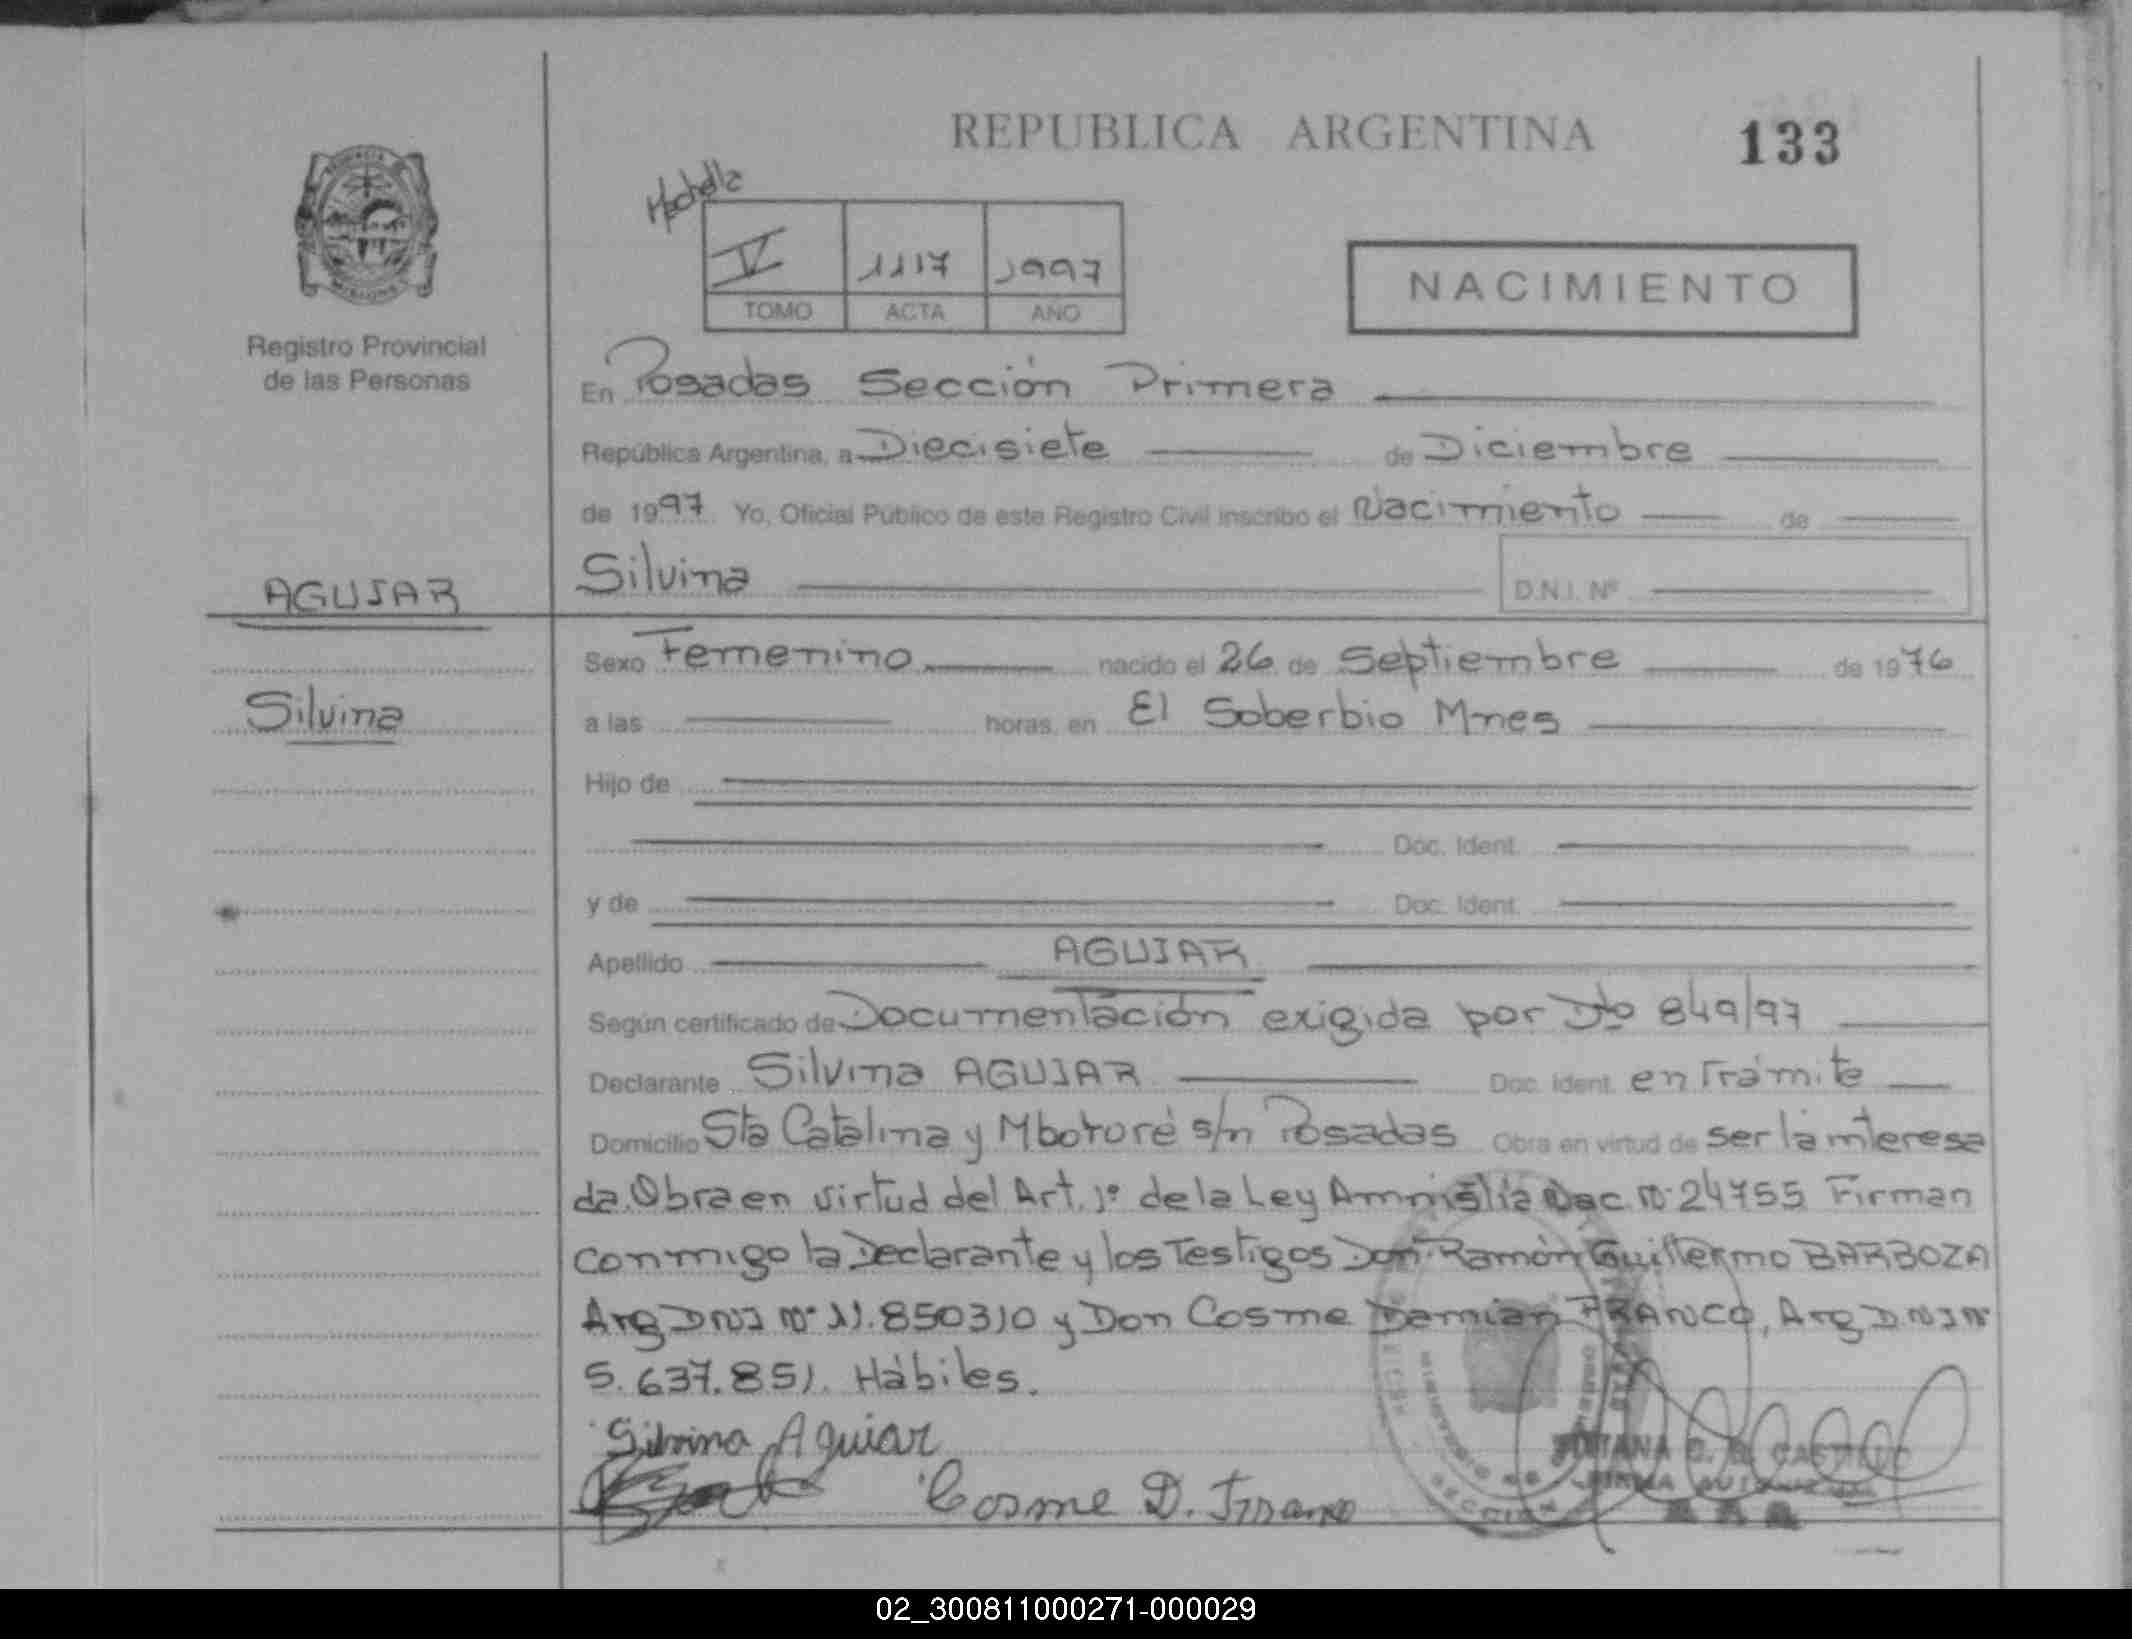 REPUBLICA ARGENTINA
133
V 1117 1997
TOMO ACTA AÑO
NACIMIENTO
Registro Provincial
de las Personas
En Posadas Sección Primera
República Argentina, a Diecisiete de Diciembre
de 1997 Yo, Oficial Público de este Registro Civil inscribo el Nacimiento de
AGUIAR
Silvina
D.N.I. Nº
Sexo Femenino nacido el 26 de Septiembre de 1976
Silvina
a las horas, en El Soberbio Mnes
Hijo de
Doc. Ident.
y de Doc. Ident.
Apellido AGUIAR
Según certificado de Documentación exigida por Dto 849/97
Declarante Silvina AGUIAR Doc. Ident. en Trámite
Domicilio Sta Catalina y Mbororé s/n Posadas Obra en virtud de ser la interesa
da. Obra en virtud del Art. 1º de la Ley Amnistía Nac. Nº 24755 Firman
conmigo la Declarante y los Testigos Don Ramón Guillermo BARBOZA
Arg DNI Nº 11.850310 y Don Cosme Damian FRANCO, Arg D.N.I Nº
5.637.851. Hábiles.
Silvina Aguiar
Cosme D. Franco
02_300811000271-000029